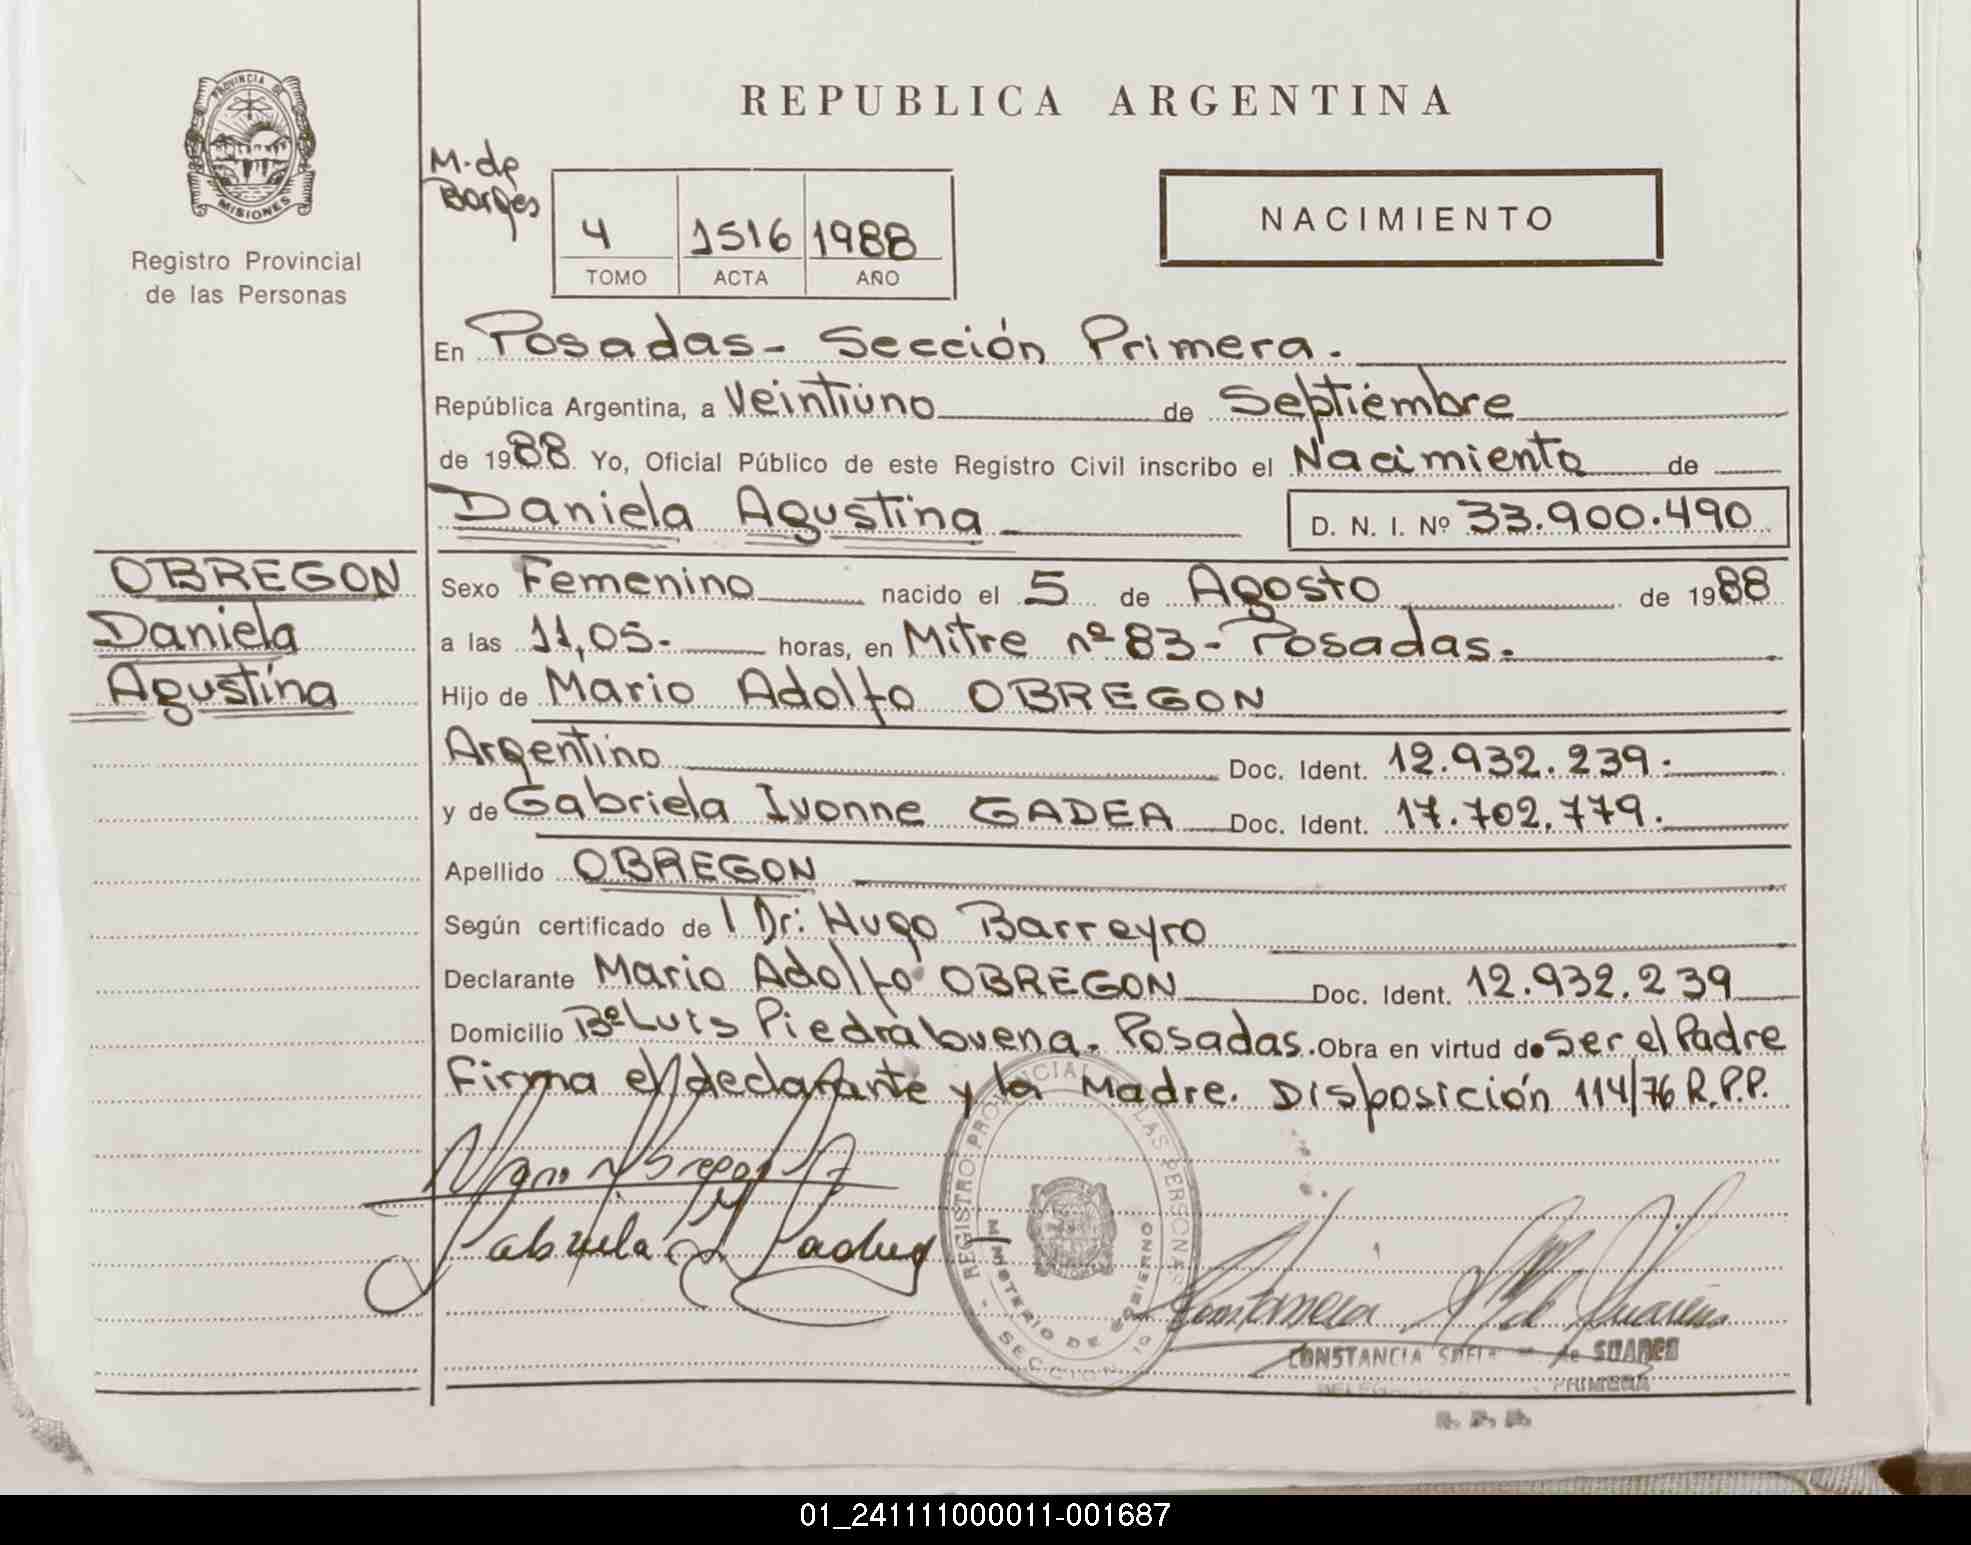 REPUBLICA ARGENTINA
PROVINCIA DE
MISIONES
Registro Provincial
de las Personas
M. de
Borges
4 1516 1988
TOMO ACTA AÑO
NACIMIENTO
En Posadas - Sección Primera.
República Argentina, a Veintiuno de Septiembre
de 1988 Yo, Oficial Público de este Registro Civil inscribo el Nacimiento de
Daniela Agustina D. N. I. Nº 33.900.490
OBREGON
Daniela
Agustina
Sexo Femenino nacido el 5 de Agosto de 1988
a las 11,05- horas, en Mitre nº 83 - Posadas.
Hijo de Mario Adolfo OBREGON
Argentino Doc. Ident. 12.932.239.
y de Gabriela Ivonne GADEA Doc. Ident. 17.702.779.
Apellido OBREGON
Según certificado de l Dr: Hugo Barreyro
Declarante Mario Adolfo OBREGON Doc. Ident. 12.932.239
Domicilio Bº Luis Piedrabuena. Posadas. Obra en virtud de Ser el Padre
Firma el declarante y la Madre. Disposición 114/76 R.P.P.
REGISTRO PROVINCIAL LAS PERSONAS
MINISTERIO DE GOBIERNO
SECCION 1º
CONSTANCIA de SUAREZ
PRIMERA
01_241111000011-001687